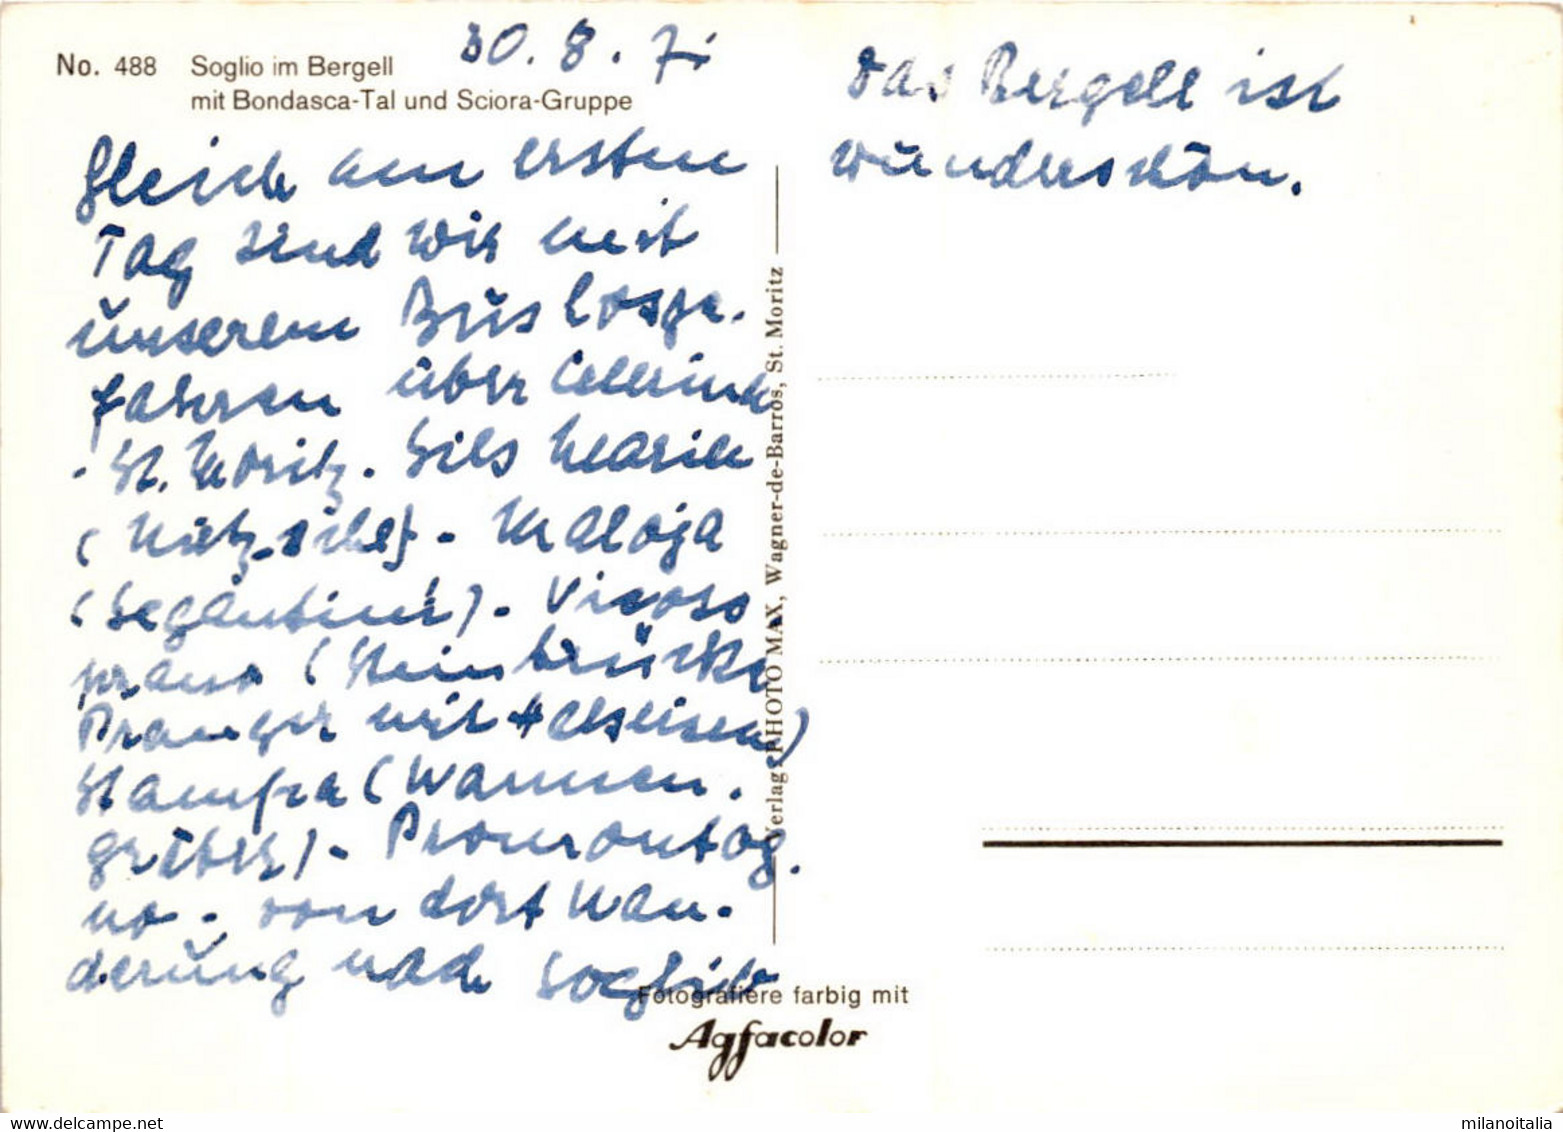 No. 488 Soglio im Bergell
mit Bondasca-Tal und Sciora-Gruppe
30. 8. 71
Gleich am ersten
Tag sind wir mit
unserem Bus losge-
fahren über Celerina
- St. Moritz - Sils Maria
- Maloja
- Vicoso
prano (Steinbrücke
Pranger mit Halseisen)
Stampa (Wannen-
gräber) - Promontog-
no - von dort Wan-
derung nach Soglio
das Bergell ist
wunderschön.
Verlag: PHOTO MAX, Wagner-de-Barros, St. Moritz
Fotografiere farbig mit
Agfacolor
milanoitalia